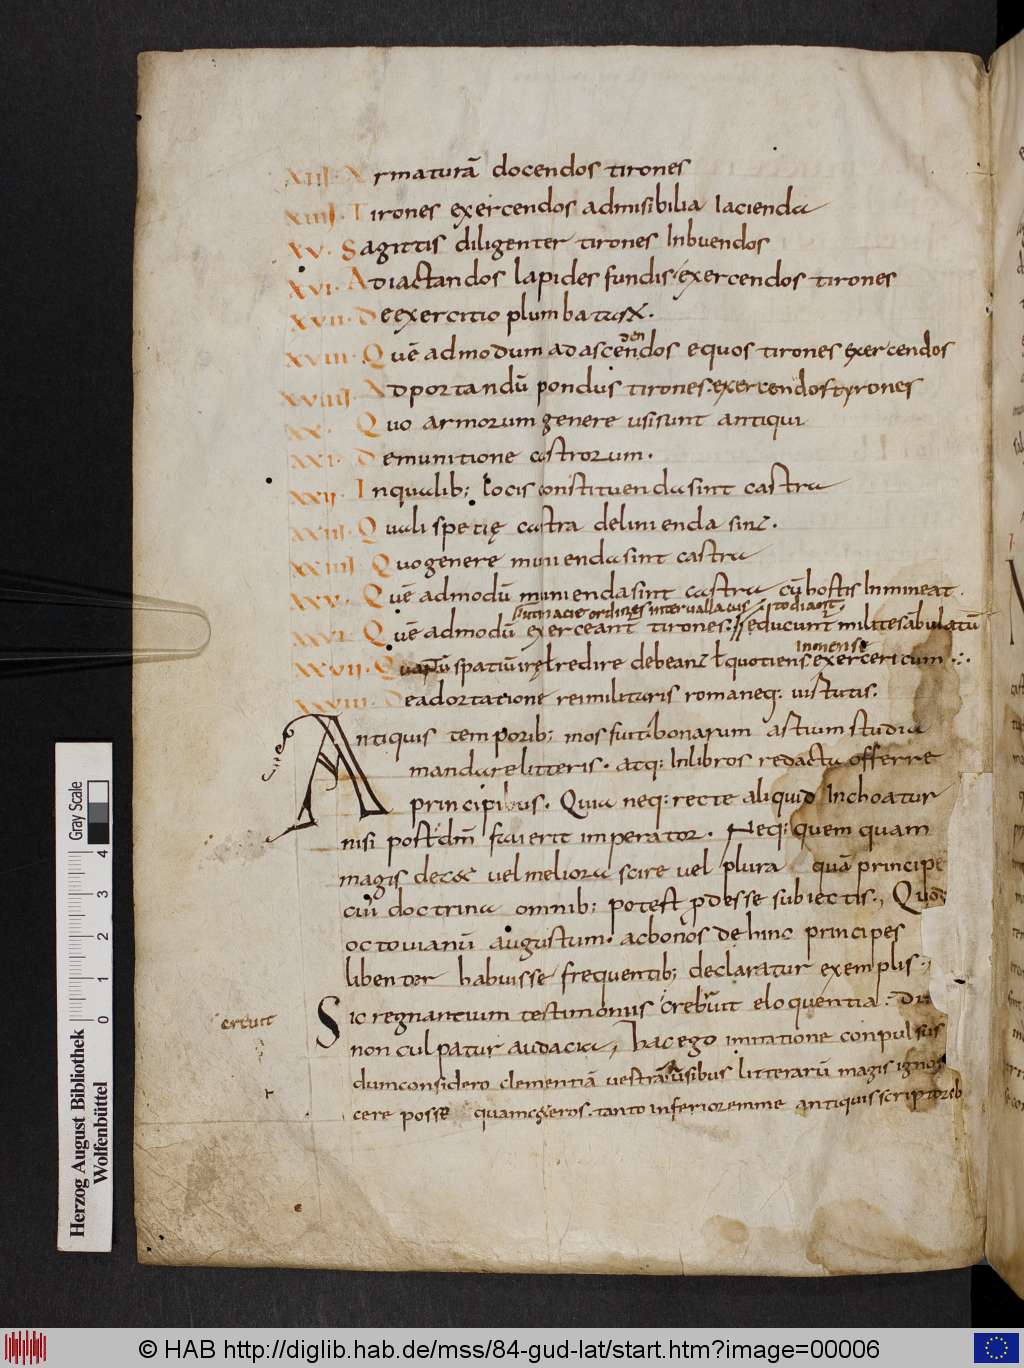 XIII. Armaturā docendos tirones
XIIII. Tirones exercendos admisibilia Iacienda
XV. Sagittis diligenter tirones Inbuendos
XVI. Adiactandos lapides fundis exercendos tirones
XVII. Deexercitio plumbatarꝝ.
XVIII. Quēadmodum adascendendos equos tirones exercendos
XVIIII. Adportandū pondus tirones.exercendos tyrones
XX. Quo armorum genere usisunt antiqui
XXI. Demunitione castrorum.
XXII. Inqualib; locis constituendasint castra
XXIII. Quali spetię castra delinienda sint.
XXIIII. Quogenere muniendasint castra
XXV. Quēadmodū muniendasint castra cū hostis Inmineat.
utinacie ordines intervallavis custodiant.
XXVI. Quēadmodū exerceant tirones. educunt militesabulatū
inmense
XXVII. spatiū redire debeant ł quotiens exerceri cum
XXVIII. Deadortatione reimilitaris romaneq: uirtutis.
Antiquis temporib; mos fuit bonarum astium studia
mandare litteris. atq: Inlibros redacta offerre
principibus. Quia neq: recte aliquid Inchoatur
nisi post dm̄ fauerit imperator. Neq: quem quam
magis decet uel meliora scire uel plura quā principē
cui doctrina omnib; potest ꝓdesse subiectis. Quod
octouianū augustum. ac bonos dehinc principes
libenter habuisse frequentib; declaratur exemplis.
Sic regnantium testimoniis crebruit eloquentia: Dū
non culpatur audacia, hac ego imitatione conpulsus
dum considero clementiā vestrā ausibus litterarū magis ignos
cere posse quam ceteros. tanto inferiorem me antiquis scriptorib
Gray Scale
0 1 2 3 4
Herzog August Bibliothek
Wolfenbüttel
© HAB http://diglib.hab.de/mss/84-gud-lat/start.htm?image=00006